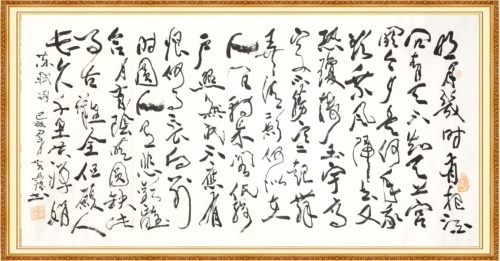 明月幾時有把酒
問青天不知天上宮
闕今夕是何年我
欲乘風歸去又
恐瓊樓玉宇高
處不勝寒起舞
弄清影何似在
人間轉朱閣低綺
戶照無眠不應有
恨何事長向別
時圓人有悲歡離
合月有陰晴圓缺此
事古難全但願人
長久千里共嬋娟
蘇軾詞